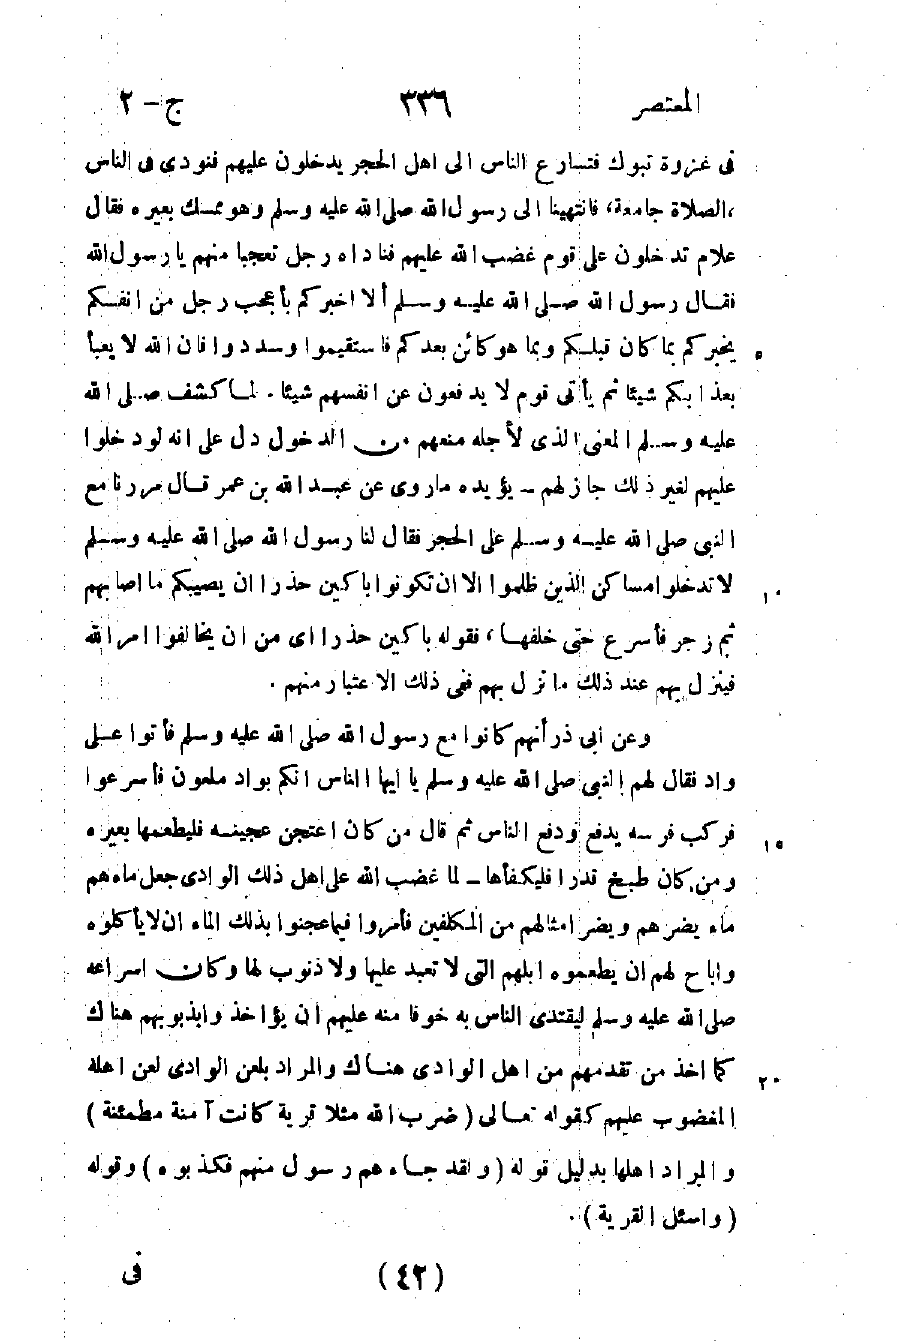 المعتصر ٣٣٦ ج-٢
فى غزوة تبوك فتسارع الناس الى اهل الحجر يدخلون عليهم فنودى فى الناس
،الصلاة جامعة، فانتهينا الى رسول الله صلى الله عليه وسلم وهو ممسك بعيره فقال
علام تدخلون على قوم غضب الله عليهم فناداه رجل تعجبا منهم يا رسول الله
فقال رسول الله صلى الله عليه وسلم ألا اخبركم بأعجب رجل من انفسكم
يخبركم بما كان قبلكم وبما هو كائن بعدكم فاستقيموا وسددوا فان الله لا يعبأ ٥
بعذابكم شيئا ثم يأتى قوم لا يدفعون عن انفسهم شيئا . لما كشف صلى الله
عليه وسلم المعنى الذى لأجله منعهم من الدخول دل على انه لو دخلوا
عليهم لغير ذلك جاز لهم - يؤيده ماروى عن عبد الله بن عمر قال مررنا مع
النبى صلى الله عليه وسلم على الحجر فقال لنا رسول الله صلى الله عليه وسلم
لا تدخلوا مساكن الذين ظلموا الا ان تكونوا باكين حذرا ان يصيبكم ما اصابهم ١٠
ثم زجر فأسرع حتى خلفها، فقوله باكين حذرا اى من ان يخالفوا امر الله
فينزل بهم عند ذلك ما نزل بهم ففى ذلك الاعتبار منهم .
وعن ابى ذر أنهم كانوا مع رسول الله صلى الله عليه وسلم فأتوا على
واد نقال لهم النبى صلى الله عليه وسلم يا ايها الناس انكم بواد ملعون فأسرعوا
فركب فرسه يدفع ودفع الناس ثم قال من كان اعتجن عجينه فليطعمها بعيره ١٥
ومن كان طبخ قدرا فليكفأها - لما غضب الله على اهل ذلك الوادى جعل ماءهم
ماء يضرهم ويضر امثالهم من المكلفين فأمروا فيما عجنوا بذلك الماء ان لا يأكلوه
واباح لهم ان يطعموه ابلهم التى لا تعبد عليها ولا ذنوب لها وكان اسراعه
صلى الله عليه وسلم ليقتدى الناس به خوفا منه عليهم ان يؤاخذوا بذنوبهم هناك
كما اخذ من تقدمهم من اهل الوادى هناك والمراد بلعن الوادى لعن اهله ٢٠
المغضوب عليهم كقوله تعالى ( ضرب الله مثلا قرية كانت آمنة مطمئنة )
والمراد اهلها بدليل قوله ( ولقد جاءهم رسول منهم فكذبوه ) وقوله
( واسئل القرية ) .
(٤٢) فى